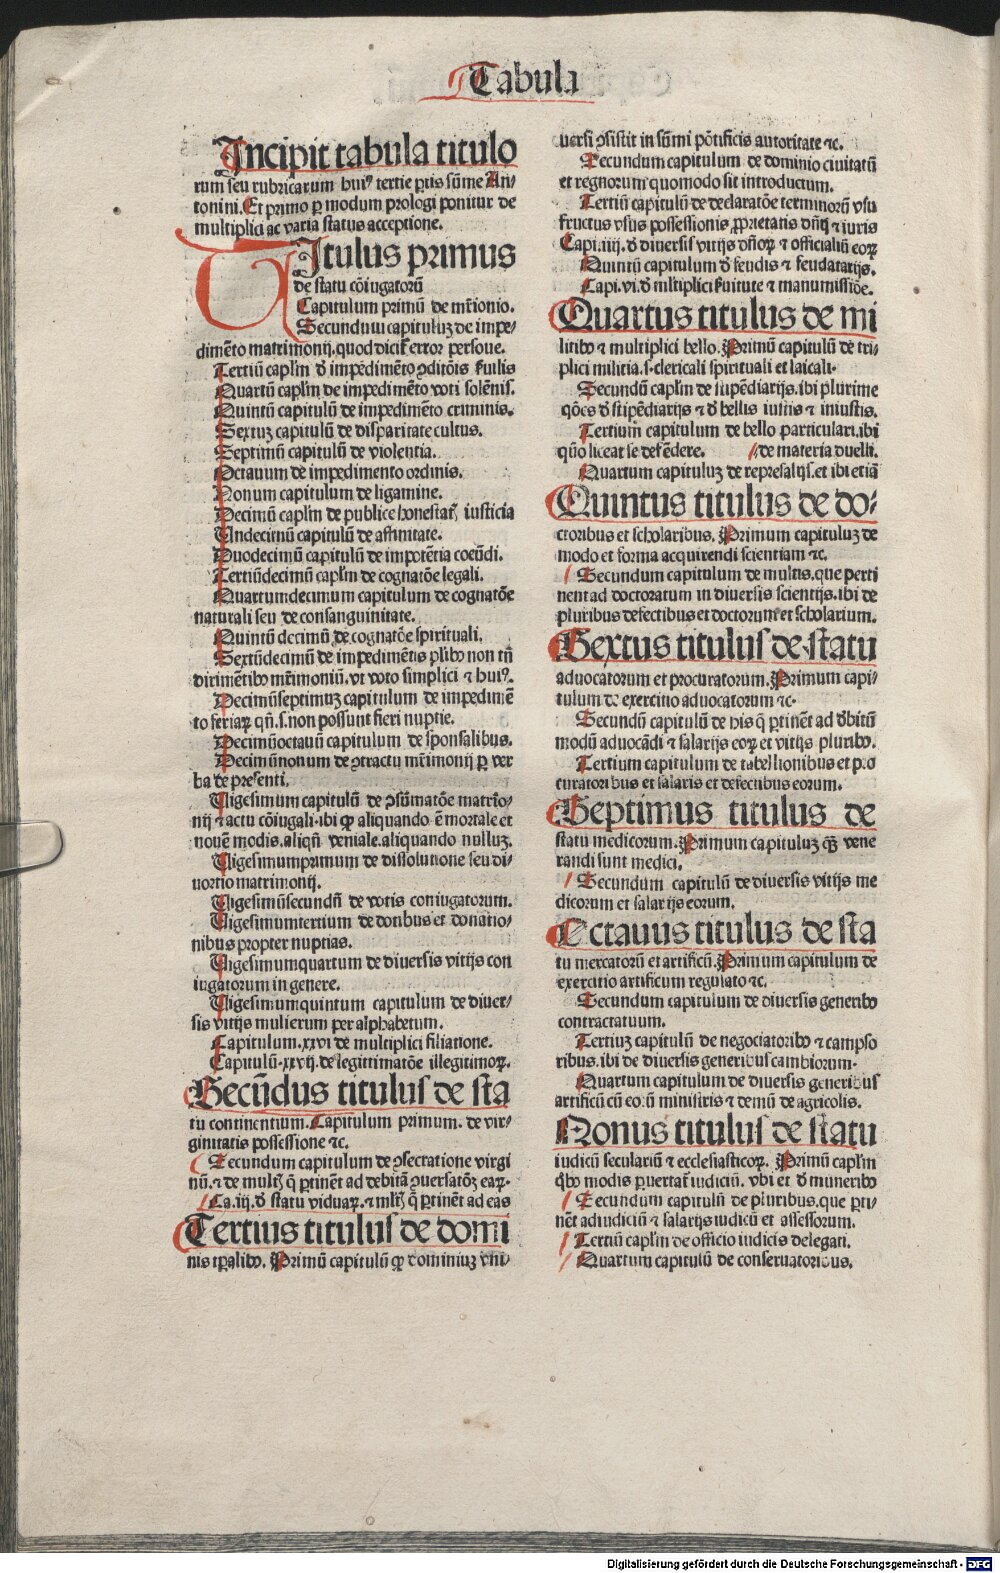 Tabula
Incipit tabula titulo
rum seu rubricarum huiꝰ tertie ꝑtis sūme An⸗
tonini. Et primo ꝑ modum prologi ponitur de
multiplici ac varia status acceptione.
Titulus primus
de statu cōiugatorū
Capitulum primū de mr̄ionio.
Secundum capituluꝫ de impe⸗
dimēto matrimonij. quod dicit̄ error persone.
Tertiū capl'm d' impedimēto ꝯditōis ẜuilis
Quartū capl'm de impedimēto voti solēnis.
Quintū capitulū de impedimēto criminis.
Sextuꝫ capitulū de disparitate cultus.
Septimū capitulū de violentia.
Octauum de impedimento ordinis.
Nonum capitulum de ligamine.
Decimū capl'm de publice honestat̄ iusticia
Undecimū capitulū de affinitate.
Duodecimū capitulū de impotētia coeūdi.
Tertiūdecimū capl'm de cognatōe legali.
Quartumdecimum capitulum de cognatōe
naturali seu de consanguinitate.
Quintū decimū de cognatōe spirituali.
Sextūdecimū de impedimētis pl'ibꝰ non tn̄
dirimētibꝰ mr̄imoniū. vt voto simplici ⁊ huiꝰ.
Decimūseptimuꝫ capitulum de impedimē
to feriaꝝ qn̄.s.non possunt fieri nuptie.
Decimūoctauū capitulum de sponsalibus.
Decimūnonum de ꝯtractu mr̄imonij ꝑ ver
ba de presenti.
Uigesimum capitulū de ꝯsūmatōe matrīo⸗
nij ⁊ actu cōiugali. ibi ꝙ aliquando ē mortale et
nouē modis. aliqn̄ veniale. aliquando nulluꝫ.
Uigesimumprimum de dissolutione seu di⸗
uortio matrimonij.
Uigesimūsecundū de votis coniugatorum.
Uigesimumtertium de dotibus et donatio⸗
nibus propter nuptias.
Uigesimumquartum de diuersis vitijs con
iugatorum in genere.
Uigesimumquintum capitulum de diuer⸗
sis vitijs mulierum per alphabetum.
Capitulum .xxvi de multiplici filiatione.
Capitulū .xxvij. de legittimatōe illegitimoꝝ.
Secūdus titulus de sta
tu continentium. Capitulum primum. de vir⸗
ginitatis possessione ⁊c.
Secundum capitulum de ꝯsecratione virgi
nū. ⁊ de mult̄ q̄ ꝑtinēt ad debitā ꝯuersatōꝫ eaꝝ.
Ca. iij. d' statu viduaꝝ. ⁊ ml't̄ q̄ ꝑtinēt ad eas
Tertius titulus de domi
nis tꝑalibꝰ. Primū capitulū ꝙ dominiuꝫ vni⸗
uersi ꝯsistit in sūmi pōtificis autoritate ⁊c.
Secundum capitulum de dominio ciuitatū
et regnorum quomodo sit introductum.
Tertiū capitulū de declaratōe terminorū vsu
fructus vsus possessionis ꝓprietatis dn̄ij ⁊ iuris
Capi. iiij. d' diuersis vitijs dn̄oꝝ ⁊ officialiū eoꝝ
Quintū capitulum d' feudis ⁊ feudatarijs.
Capi. vi. d' mltiplici ẜuitute ⁊ manumissiōe.
Quartus titulus de mi
litibꝰ ⁊ multiplici bello. Primū capitulū de tri⸗
plici militia. s. clericali spirituali et laicali.
Secundū capl'm de stipēdiarijs. ibi plurime
q̄ōes d' stipēdiarijs ⁊ d' bellis iustis ⁊ iniustis.
Tertium capitulum de bello particulari. ibi
qn̄o liceat se defēdere. de materia duelli.
Quartum capituluꝫ de represalijs. et ibi etiā
Quintus titulus de do⸗
ctoribus et scholaribus. Primum capituluꝫ de
modo et forma acquirendi scientiam ⁊c.
Secundum capitulum de multis. que perti
nent ad doctoratum in diuersis scientijs. ibi de
pluribus defectibus et doctorum et scholarium.
Sextus titulus de statu
aduocatorum et procuratorum. Primum capi⸗
tulum de exercitio aduocatorum ⁊c.
Secundū capitulū de his q̄ ꝑtinēt ad d'bitū
modū aduocādi ⁊ salarijs eoꝝ et vitijs pluribꝰ.
Tertium capitulum de tabellionibus et pro
curatoribus et salariis et defectibus eorum.
Septimus titulus de
statu medicorum. Primum capituluꝫ qꝫ vene
randi sunt medici.
Secundum capitulū de diuersis vitijs me
dicorum et salarijs eorum.
Octauus titulus de sta
tu mercatorū et artificū. Primum capitulum de
exercitio artificum regulato ⁊c.
Secundum capitulum de diuersis generibꝰ
contractatuum.
Tertiuꝫ capitulū de negociatoribꝰ ⁊ campso
ribus. ibi de diuersis generibus cambiorum.
Quartum capitulum de diuersis generibus
artificū cū eoꝝ ministris ⁊ demū de agricolis.
Nonus titulus de statu
iudicū seculariū ⁊ ecclesiasticoꝝ. Primū capl'm
q̄bꝰ modis ꝑuertat̄ iudiciū. vbi et d' muneribꝰ
Secundum capitulū de pluribus. que ꝑti⸗
nēt ad iudiciū ⁊ salarijs iudicū et assessorum.
Tertiū capl'm de officio iudicis delegati.
Quartum capitulū de conseruatoribus.
Digitalisierung gefördert durch die Deutsche Forschungsgemeinschaft - DFG